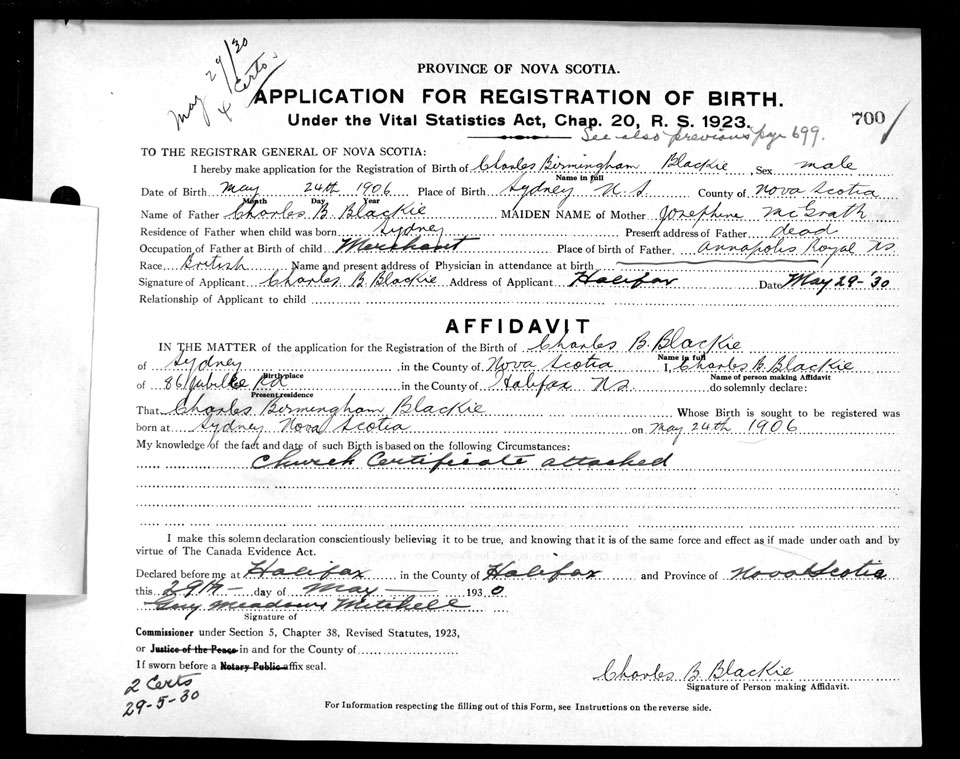 May 29/30
4 Certs.
PROVINCE OF NOVA SCOTIA.
APPLICATION FOR REGISTRATION OF BIRTH.
Under the Vital Statistics Act, Chap. 20, R. S. 1923.
700
See also previous page 699.
TO THE REGISTRAR GENERAL OF NOVA SCOTIA:
I hereby make application for the Registration of Birth of Charles Birmingham Blackie, Sex male
Name in full
Date of Birth May 24th 1906 Place of Birth Sydney N.S County of Nova Scotia
Month Day Year
Name of Father Charles B. Blackie MAIDEN NAME of Mother Josephine McGrath
Residence of Father when child was born Sydney Present address of Father dead
Occupation of Father at Birth of child Merchant Place of birth of Father Annapolis Royal NS
Race British Name and present address of Physician in attendance at birth
Signature of Applicant Charles B. Blackie Address of Applicant Halifax Date May 29-'30
Relationship of Applicant to child
AFFIDAVIT
IN THE MATTER of the application for the Registration of the Birth of Charles B. Blackie
Name in full
of Sydney in the County of Nova Scotia I, Charles B. Blackie
Birth place Name of person making Affidavit
of 86 Jubilee Rd in the County of Halifax N.S. do solemnly declare:
Present residence
That Charles Birmingham Blackie Whose Birth is sought to be registered was
born at Sydney Nova Scotia on May 24th 1906
My knowledge of the fact and date of such Birth is based on the following Circumstances:
Church Certificate attached
I make this solemn declaration conscientiously believing it to be true, and knowing that it is of the same force and effect as if made under oath and by
virtue of The Canada Evidence Act.
Declared before me at Halifax in the County of Halifax and Province of Nova Scotia
this 29th day of May 1930
Guy Meadows Mitchell
Signature of
Commissioner under Section 5, Chapter 38, Revised Statutes, 1923,
or Justice of the Peace in and for the County of
If sworn before a Notary Public affix seal.
Charles B. Blackie
Signature of Person making Affidavit.
2 Certs
29-5-30
For Information respecting the filling out of this Form, see Instructions on the reverse side.